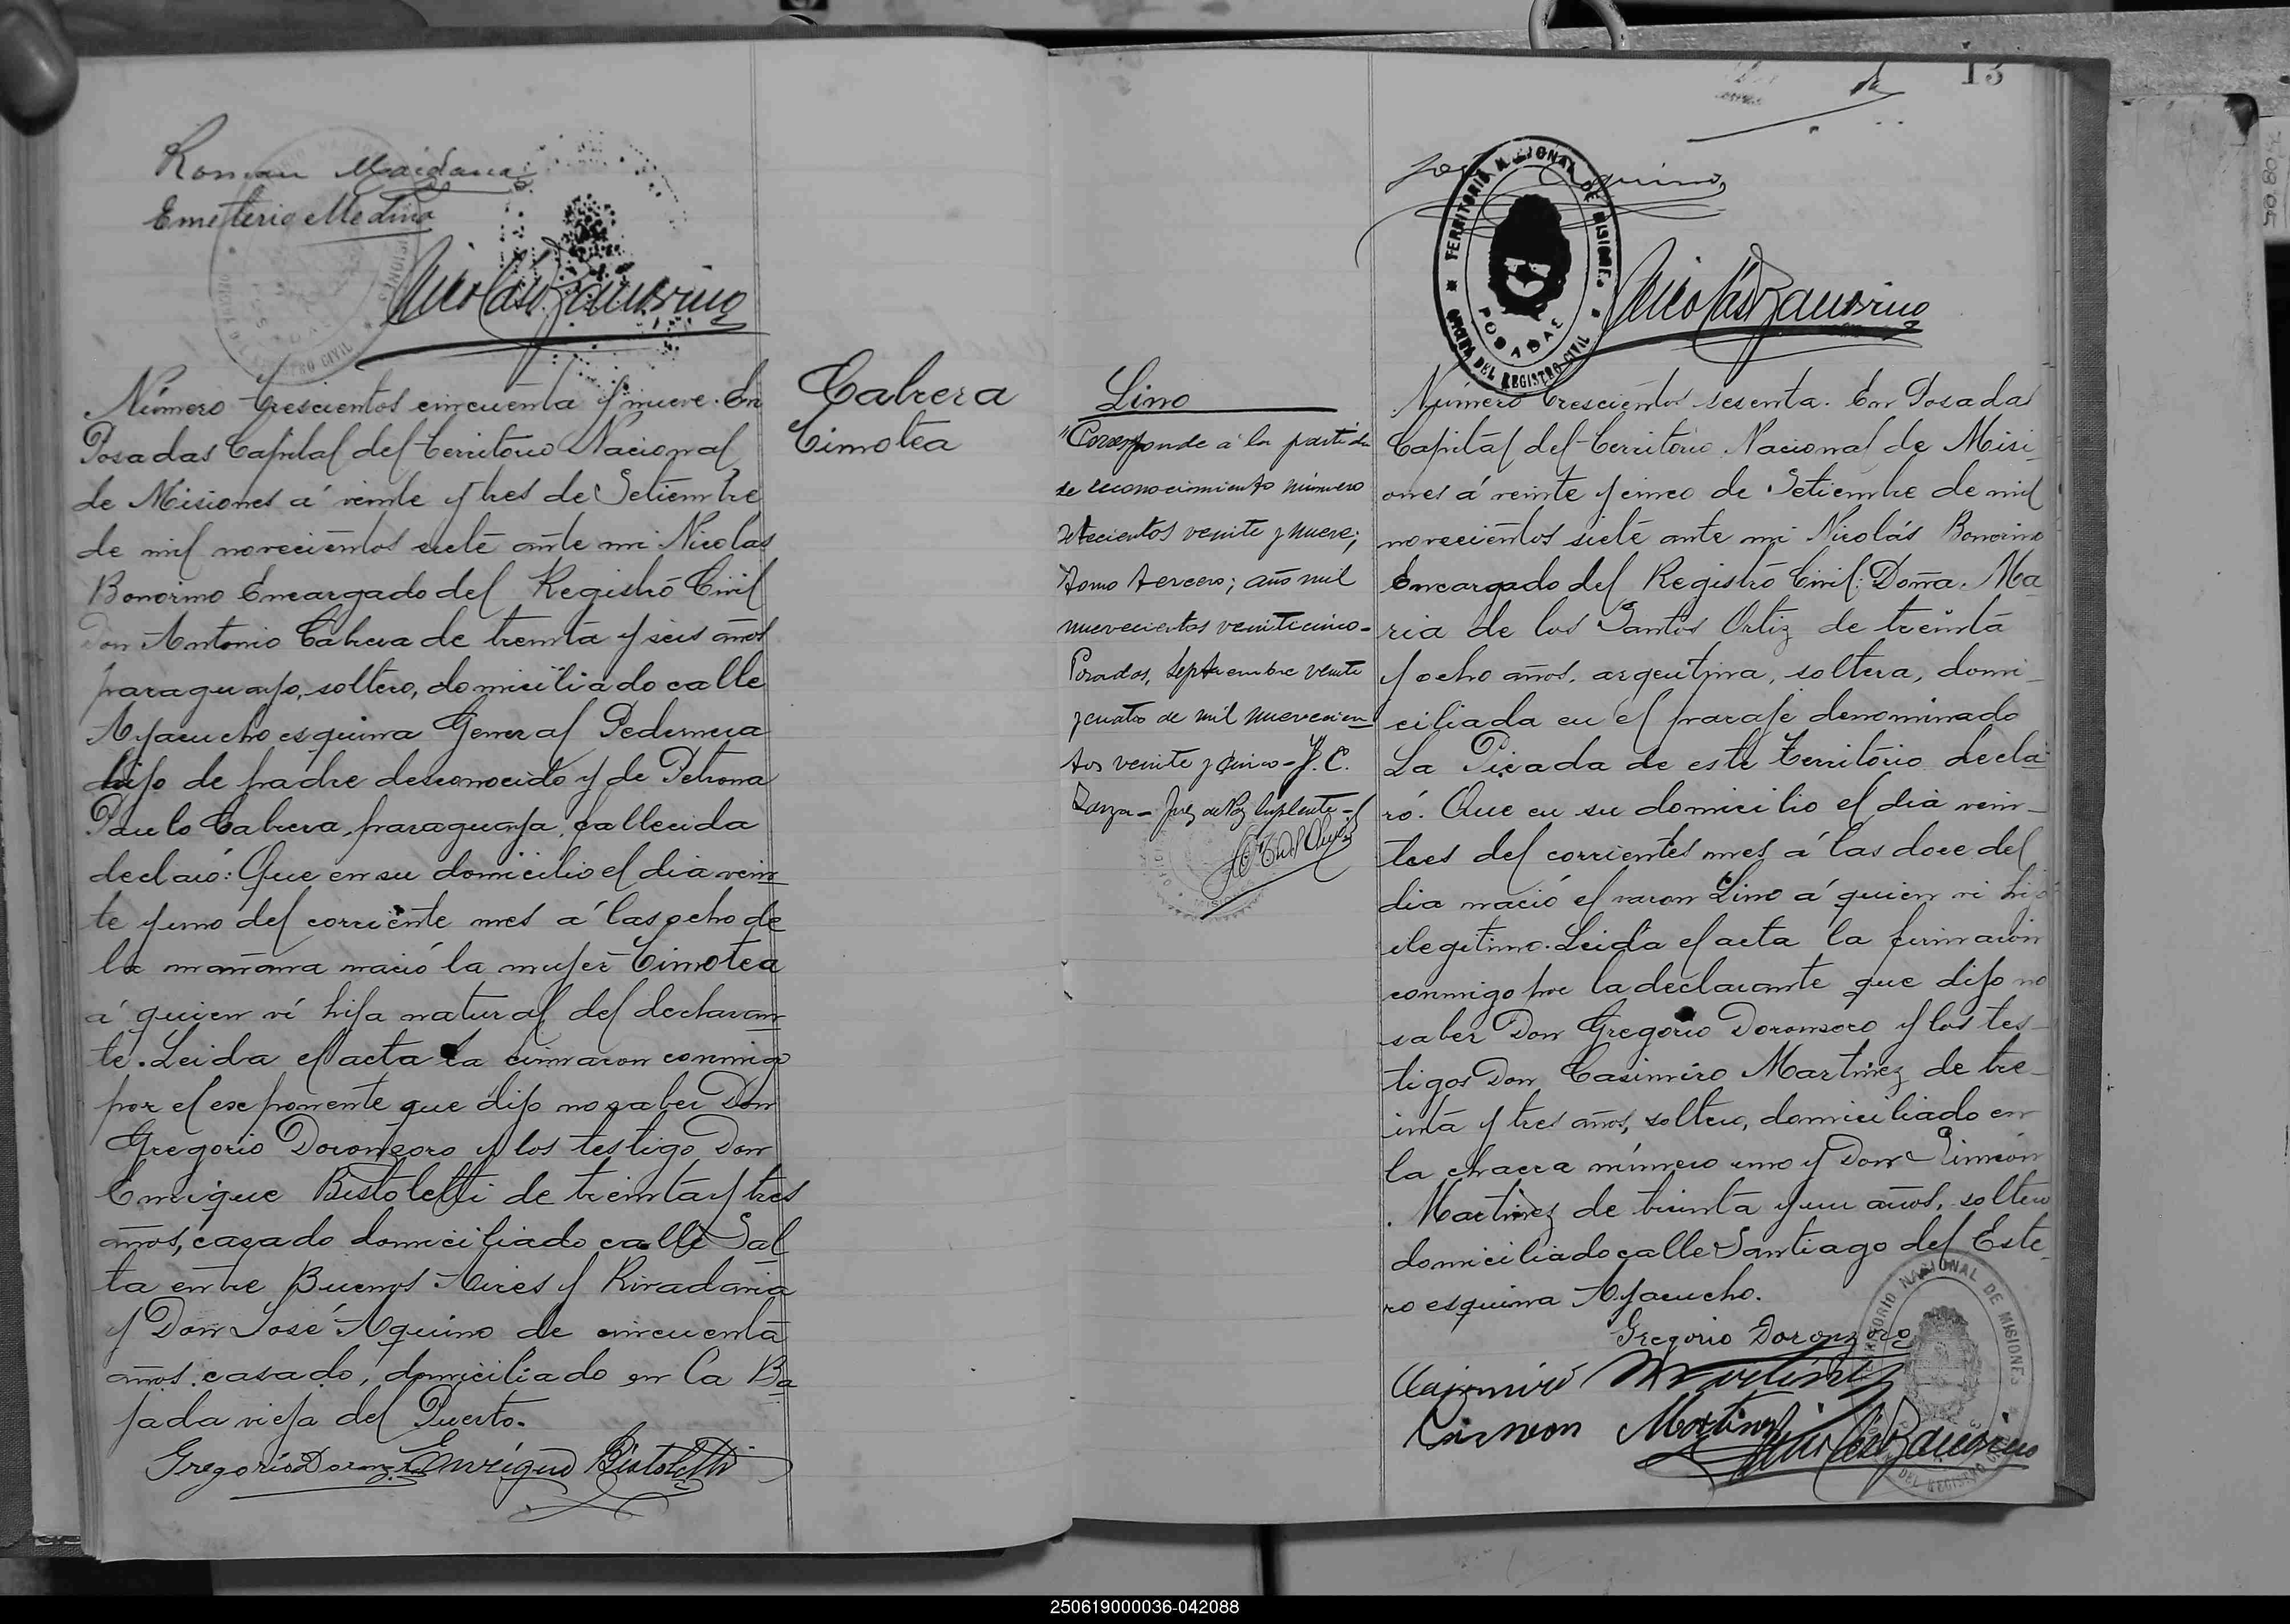 Roman Maidana
Emeterio Medina
Nicolás Bonorino
Número trescientos cincuenta y nueve. En
Posadas Capital del Territorio Nacional
de Misiones á veinte y tres de Setiembre
de mil novecientos siete ante mi Nicolas
Bonorino Encargado del Registro Civil
Don Antonio Cabrera de treinta y seis años
paraguayo, soltero, domiciliado calle
Ayacucho esquina General Pedernera
hijo de padre desconocido y de Petrona
Paulo Cabrera, paraguaya, fallecida
declaró: Que en su domicilio el dia vein
te y uno del corriente mes a las ocho de
la mañana nació la mujer Timotea
á quien ví hija natural del declaran
te. Leida el acta la firmaron conmigo
por el exponente que dijo no saber Don
Gregorio Doronzoro y los testigo Don
Enrique Bistoletti de treinta y tres
años, casado domiciliado calle Sal
ta entre Buenos Aires y Rivadavia
y Don José Aquino de cincuenta
años, casado, domiciliado en la Ba
jada vieja del Puerto.
Gregorio Doronzoro Enrique Bistoletti
Cabrera
Timotea
13
José Aquino
TERRITORIO NACIONAL DE MISIONES
POSADAS
OFICINA DEL REGISTRO CIVIL
Nicolás Bonorino
Lino
"Corresponde á la partida
de reconocimiento número
setecientos veinte y nueve;
tomo tercero; año mil
nuevecientos veinticinco-
Posadas, Septiembre veinte
y cuatro de mil nuevecien
tos veinte y cinco - J. C.
- Juez de Paz Suplente -
Número trescientos sesenta. En Posadas
Capital del Territorio Nacional de Misi
ones á veinte y cinco de Setiembre de mil
novecientos siete ante mi Nicolás Bonorino
Encargado del Registro Civil: Doña Ma
ria de los Santos Ortiz de treinta
y ocho años, argentina, soltera, domi
ciliada en el paraje denominado
La Picada de este Territorio decla
ró: Que en su domicilio el dia vein
tres del corrientes mes á las doce del
dia nació el varon Lino á quien ví hijo
ilegitimo. Leida el acta la firmaron
conmigo por la declarante que dijo no
saber Don Gregorio Doronzoro y los tes
tigos Don Casimiro Martinez de tre
inta y tres años, soltero, domiciliado en
la chacra número uno y Don Simeón
Martinez de treinta y un años, soltero
domiciliado calle Santiago del Este
ro esquina Ayacucho.
Gregorio Doronzoro
Casimiro Martinez
Simeon Martinez
Nicolás Bonorino
250619000036-042088